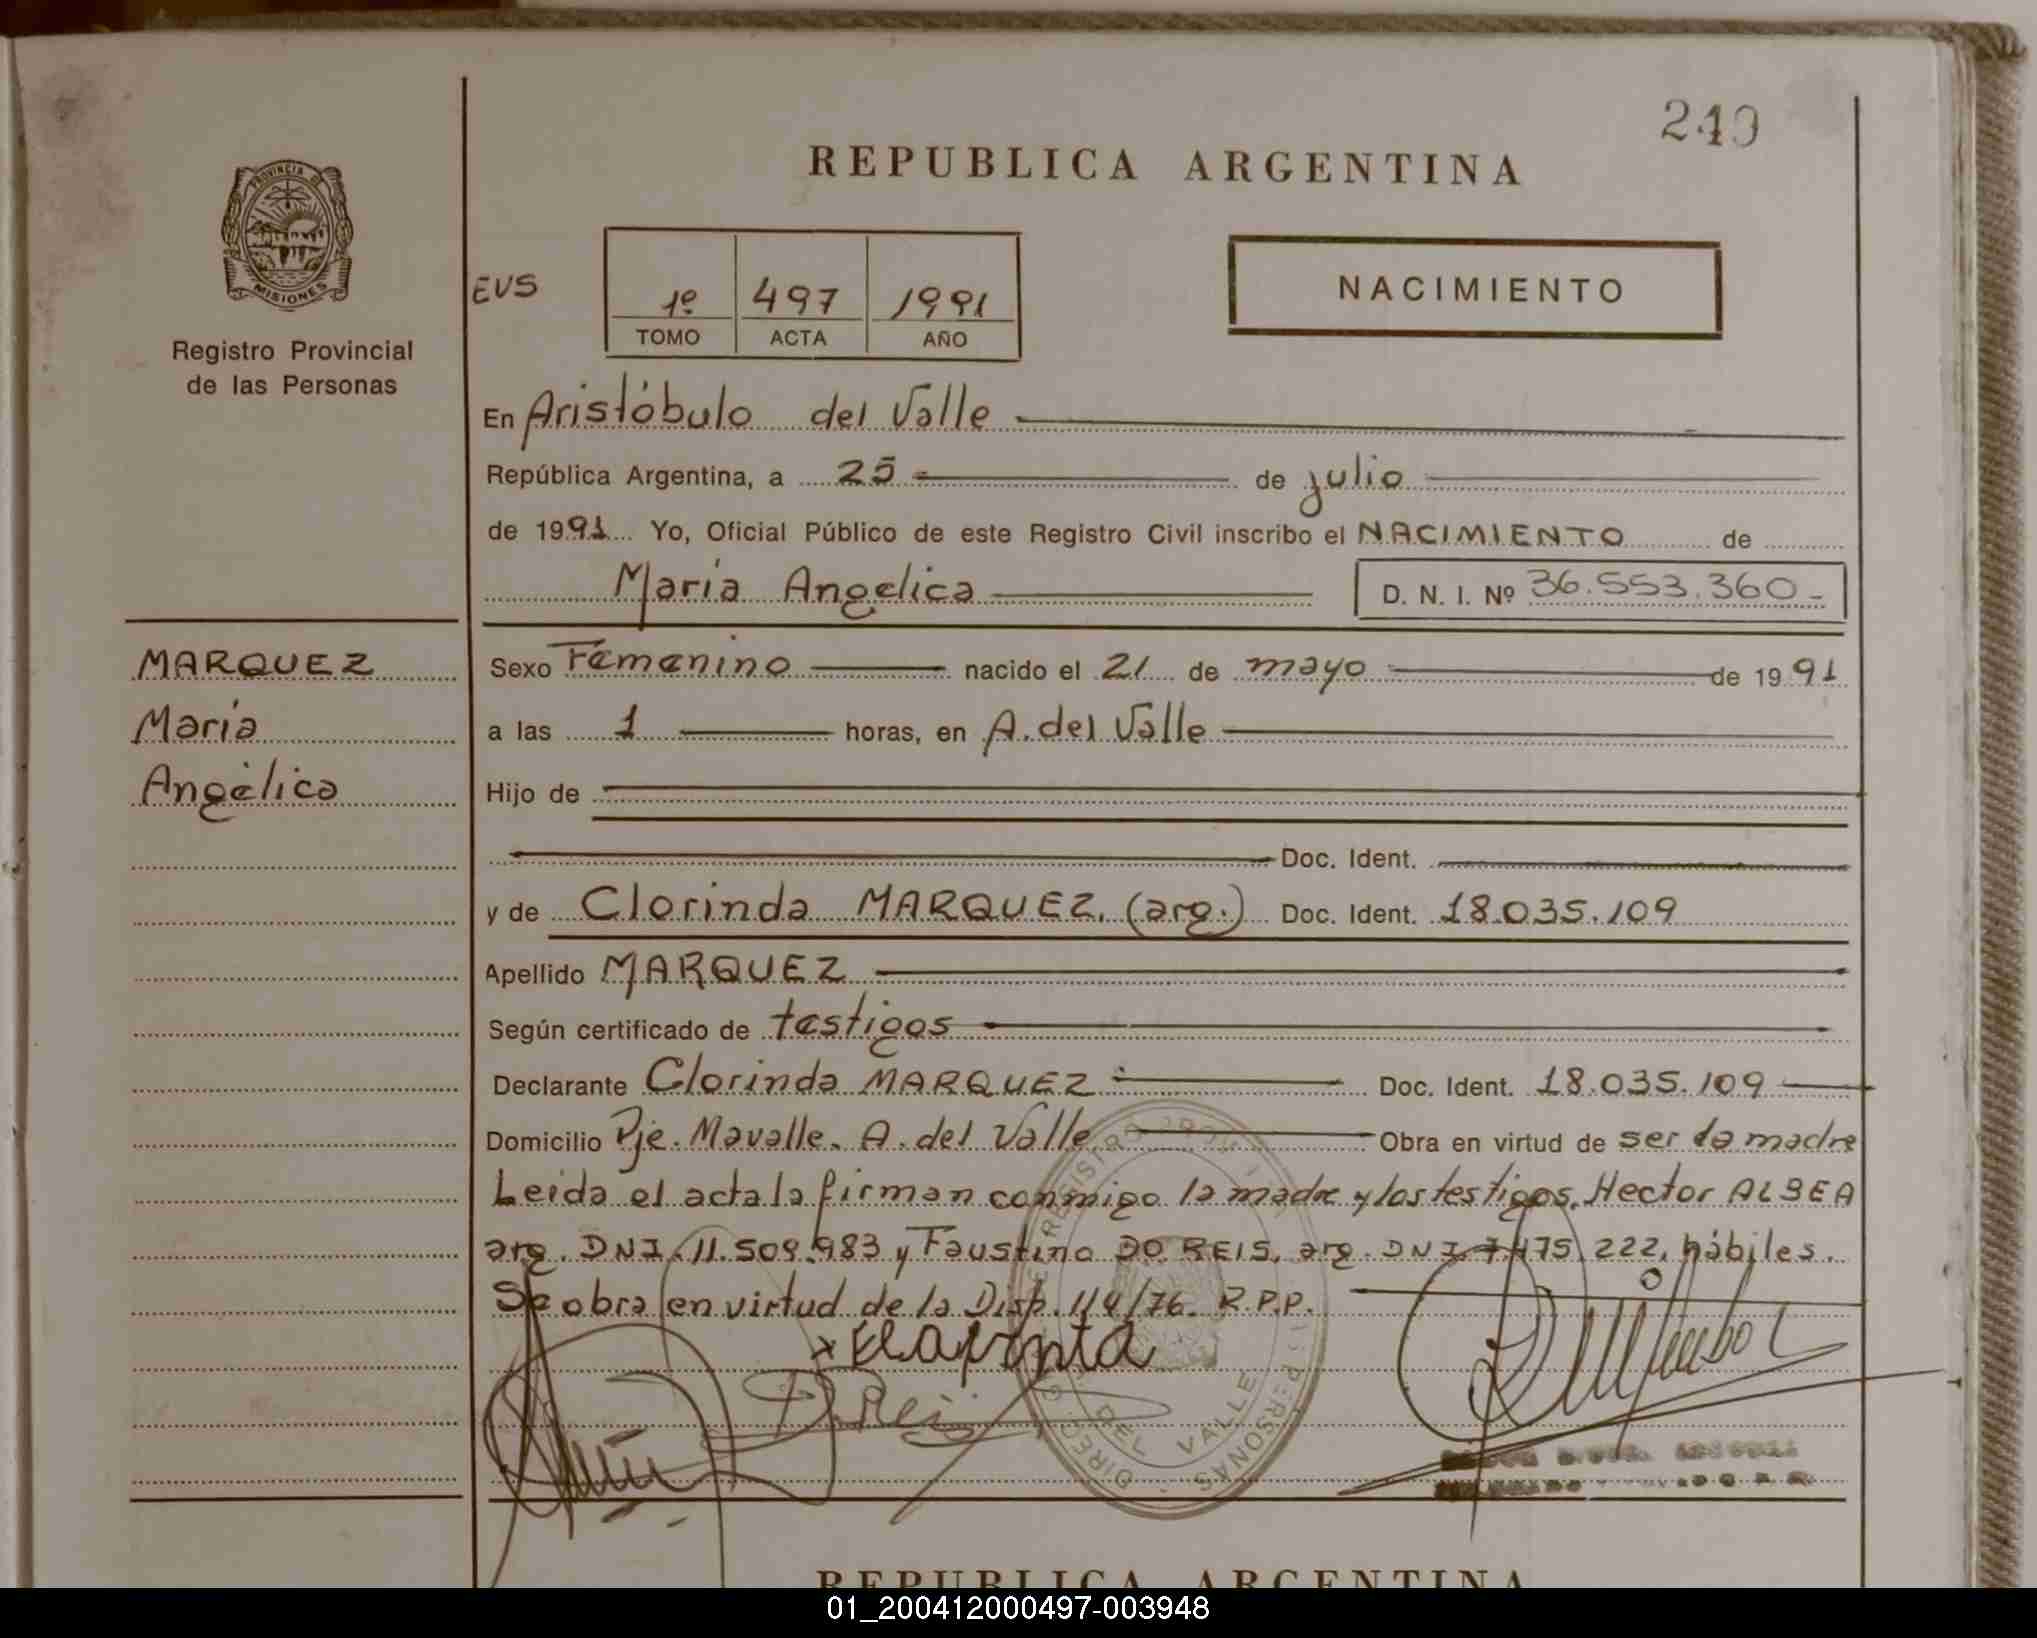 249
REPUBLICA ARGENTINA
PROVINCIA DE
MISIONES
Registro Provincial
de las Personas
EVS
1º 497 1991
TOMO ACTA AÑO
NACIMIENTO
En Aristóbulo del Valle
República Argentina, a 25 de julio
de 1991 Yo, Oficial Público de este Registro Civil inscribo el NACIMIENTO de
María Angelica D. N. I. Nº 36.553.360-
MARQUEZ
María
Angélica
Sexo Femenino nacido el 21 de mayo de 1991
a las 1 horas, en A. del Valle
Hijo de
Doc. Ident.
y de Clorinda MARQUEZ. (arg.) Doc. Ident. 18.035.109
Apellido MARQUEZ
Según certificado de testigos
Declarante Clorinda MARQUEZ Doc. Ident. 18.035.109
Domicilio Pje. Mavalle. A. del Valle Obra en virtud de ser la madre
Leida el acta la firman conmigo la madre y los testigos. Hector ALBEA
arg. DNI. 11.509.983 y Faustino DO REIS, arg. DNI 7.475.222, hábiles.
Se obra en virtud de la Disp. 114/76. R.P.P.
DEL VALLE
REPUBLICA ARGENTINA
01_200412000497-003948